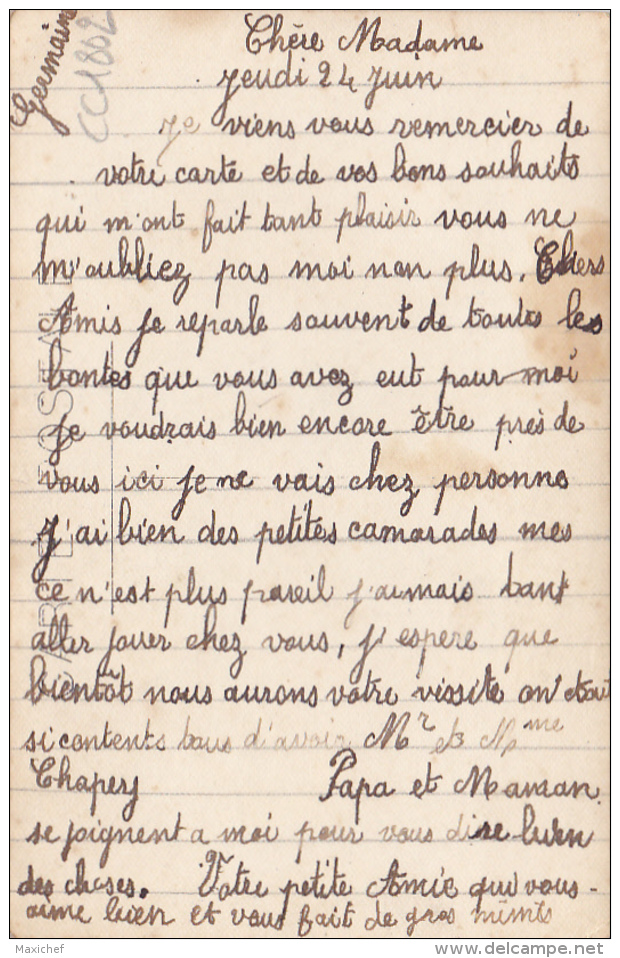 Germaine
CC1802
Chère Madame
Jeudi 24 Juin
Je viens vous remercier de
votre carte et de vos bons souhaits
qui m'ont fait tant plaisir vous ne
m'oubliez pas moi non plus. Chers
Amis je reparle souvent de toutes les
bontes que vous avez eut pour moi
je voudrais bien encore être près de
vous ici je ne vais chez personne
j'ai bien des petites camarades mes
ce n'est plus pareil j'aimais tant
aller jouer chez vous, j'espere que
bientôt nous aurons votre vissite on
si contents tous d'avoir Mr et Mme
Chapers Papa et Maman
se joignent a moi pour vous dire bien
des choses. Votre petite Amie qui vous
aime bien et vous fait de gros mimis
CARTE POSTALE
Maxichef
www.delcampe.net